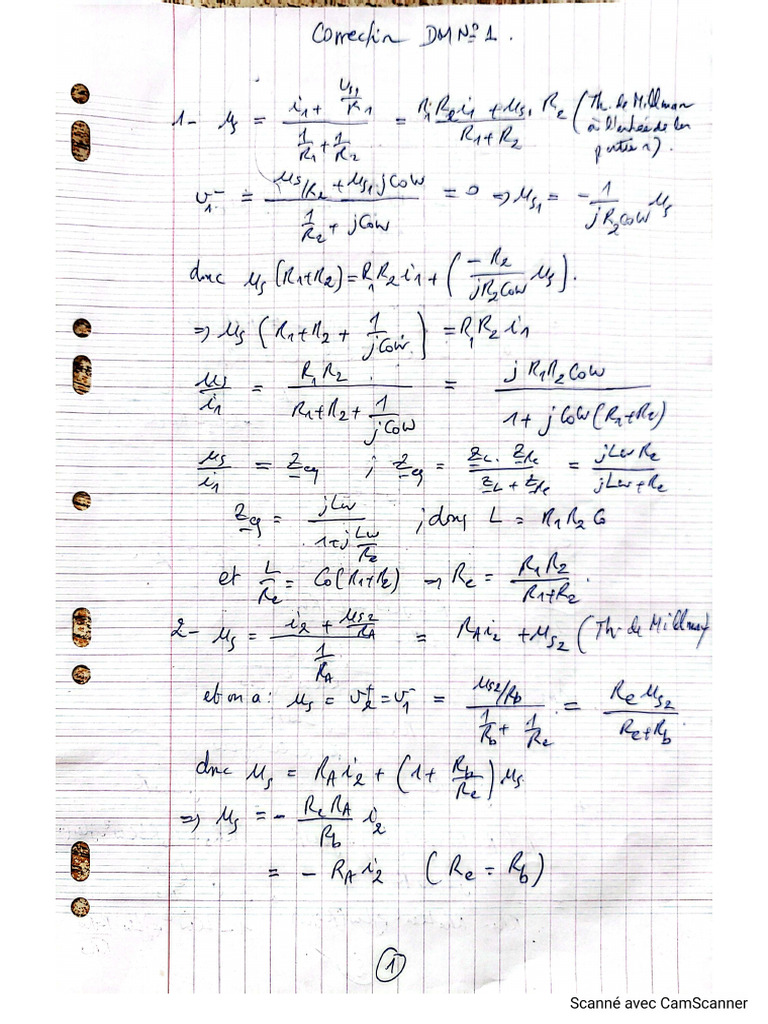 Correction DM N°1.
1- us = (i1 + us1/R1) / (1/R1 + 1/R2) = (R1R2i1 + us1 R2) / (R1+R2) (Th. de Millman
à l'entrée de la
partie 1).
v1⁻ = (us/R2 + us1 jC0ω) / (1/R2 + jC0ω) = 0 ⇒ us1 = - 1/(jR2C0ω) us
donc us(R1+R2) = R1R2i1 + (-R2/(jR2C0ω) us).
⇒ us (R1+R2 + 1/(jC0ω)) = R1R2i1
us/i1 = R1R2 / (R1+R2 + 1/(jC0ω)) = jR1R2C0ω / (1 + jC0ω(R1+R2))
us/i1 = Zeq ; Zeq = ZL.ZRe / (ZL + ZRe) = jLωRe / (jLω+Re)
Zeq = jLω / (1+j Lω/Re) ; donc L = R1R2C0
et L/Re = C0(R1+R2) → Re = R1R2/(R1+R2).
2- us = (i2 + us2/RA) / (1/RA) = RAi2 + us2 (Th. de Millman)
et on a : us = v2⁺ = v1⁻ = (us2/Rb) / (1/Rb + 1/Re) = Re us2 / (Re+Rb)
donc us = RAi2 + (1 + Rb/Re) us
⇒ us = - (ReRA/Rb) i2
= - RAi2 (Re = Rb)
1
Scanné avec CamScanner